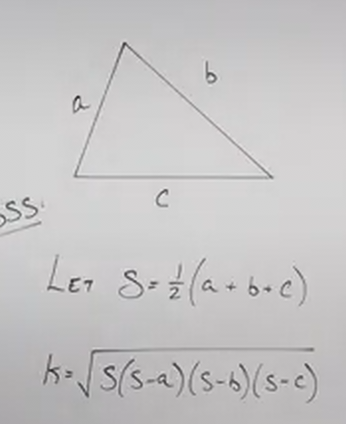 a
b
c
SSS:
LET S = 1/2 (a + b + c)
K = √S(S-a)(S-b)(S-c)